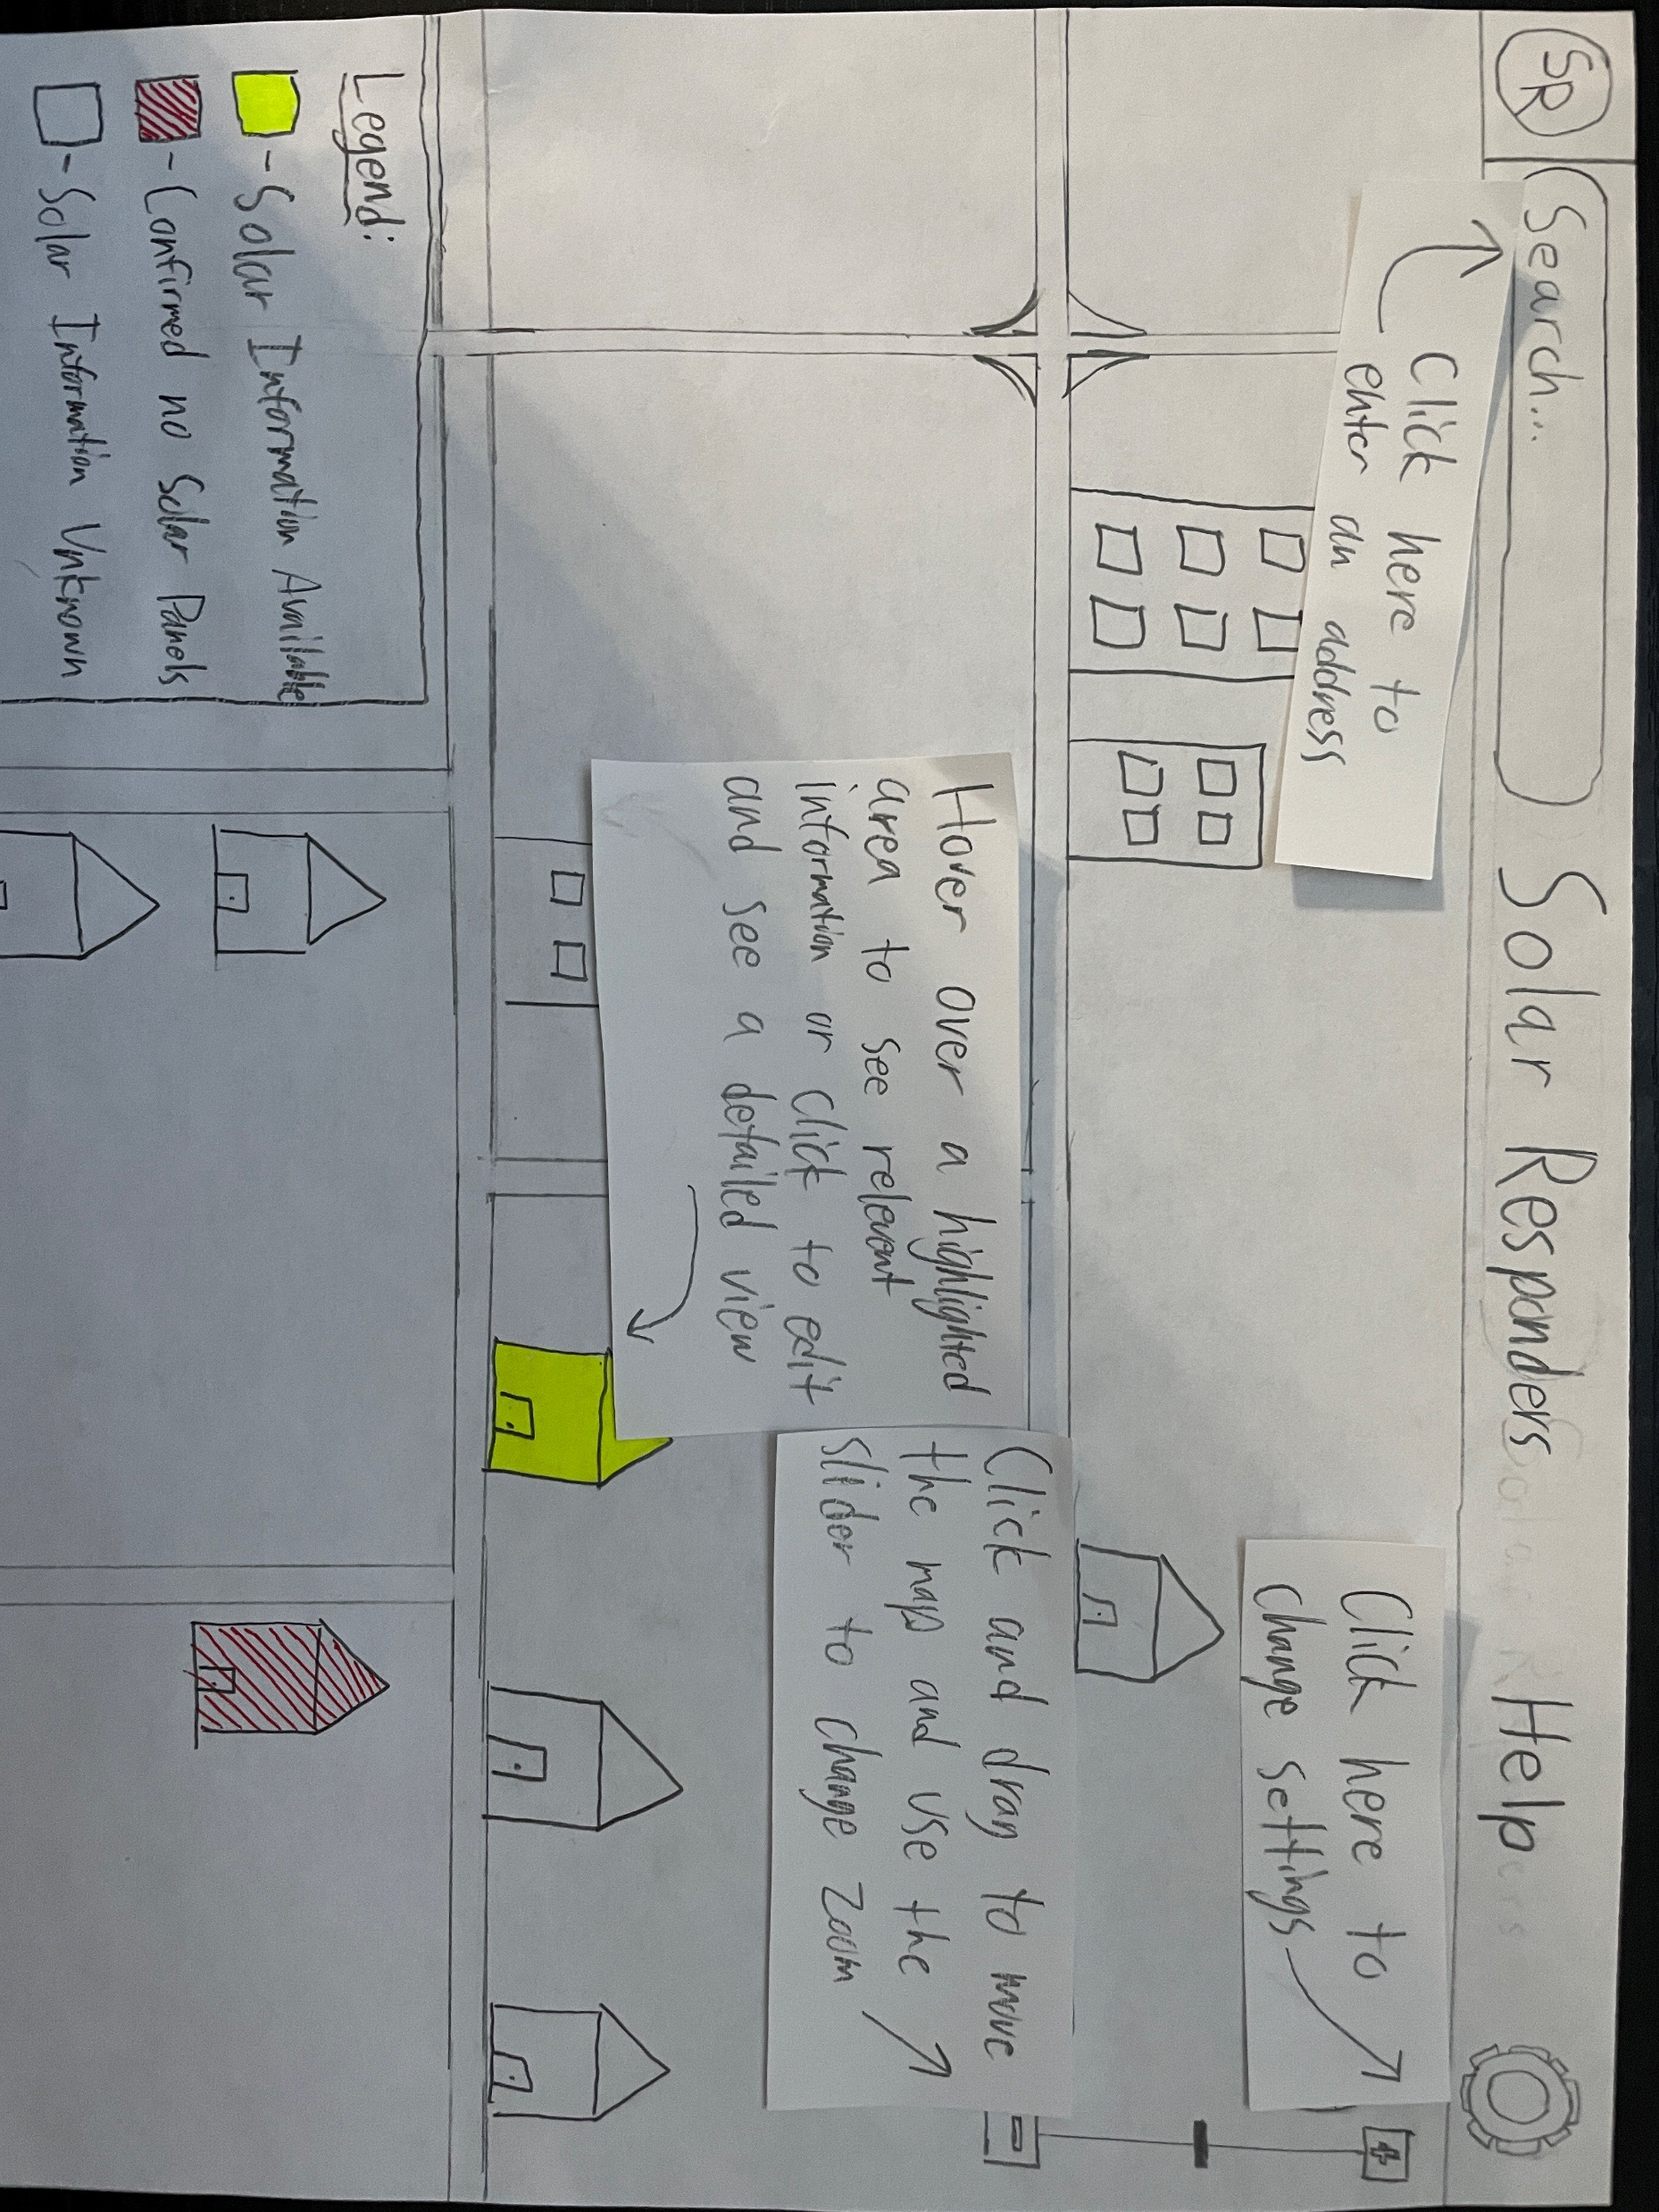 SR
Search...
Solar Responders
Help
Click here to
enter an address
Click here to
change settings
+
-
Hover over a highlighted
area to see relevant
information or click to edit
and see a detailed view
Click and drag to move
the map and use the
slider to change zoom
Legend:
- Solar Information Available
- Confirmed no Solar Panels
- Solar Information Unknown